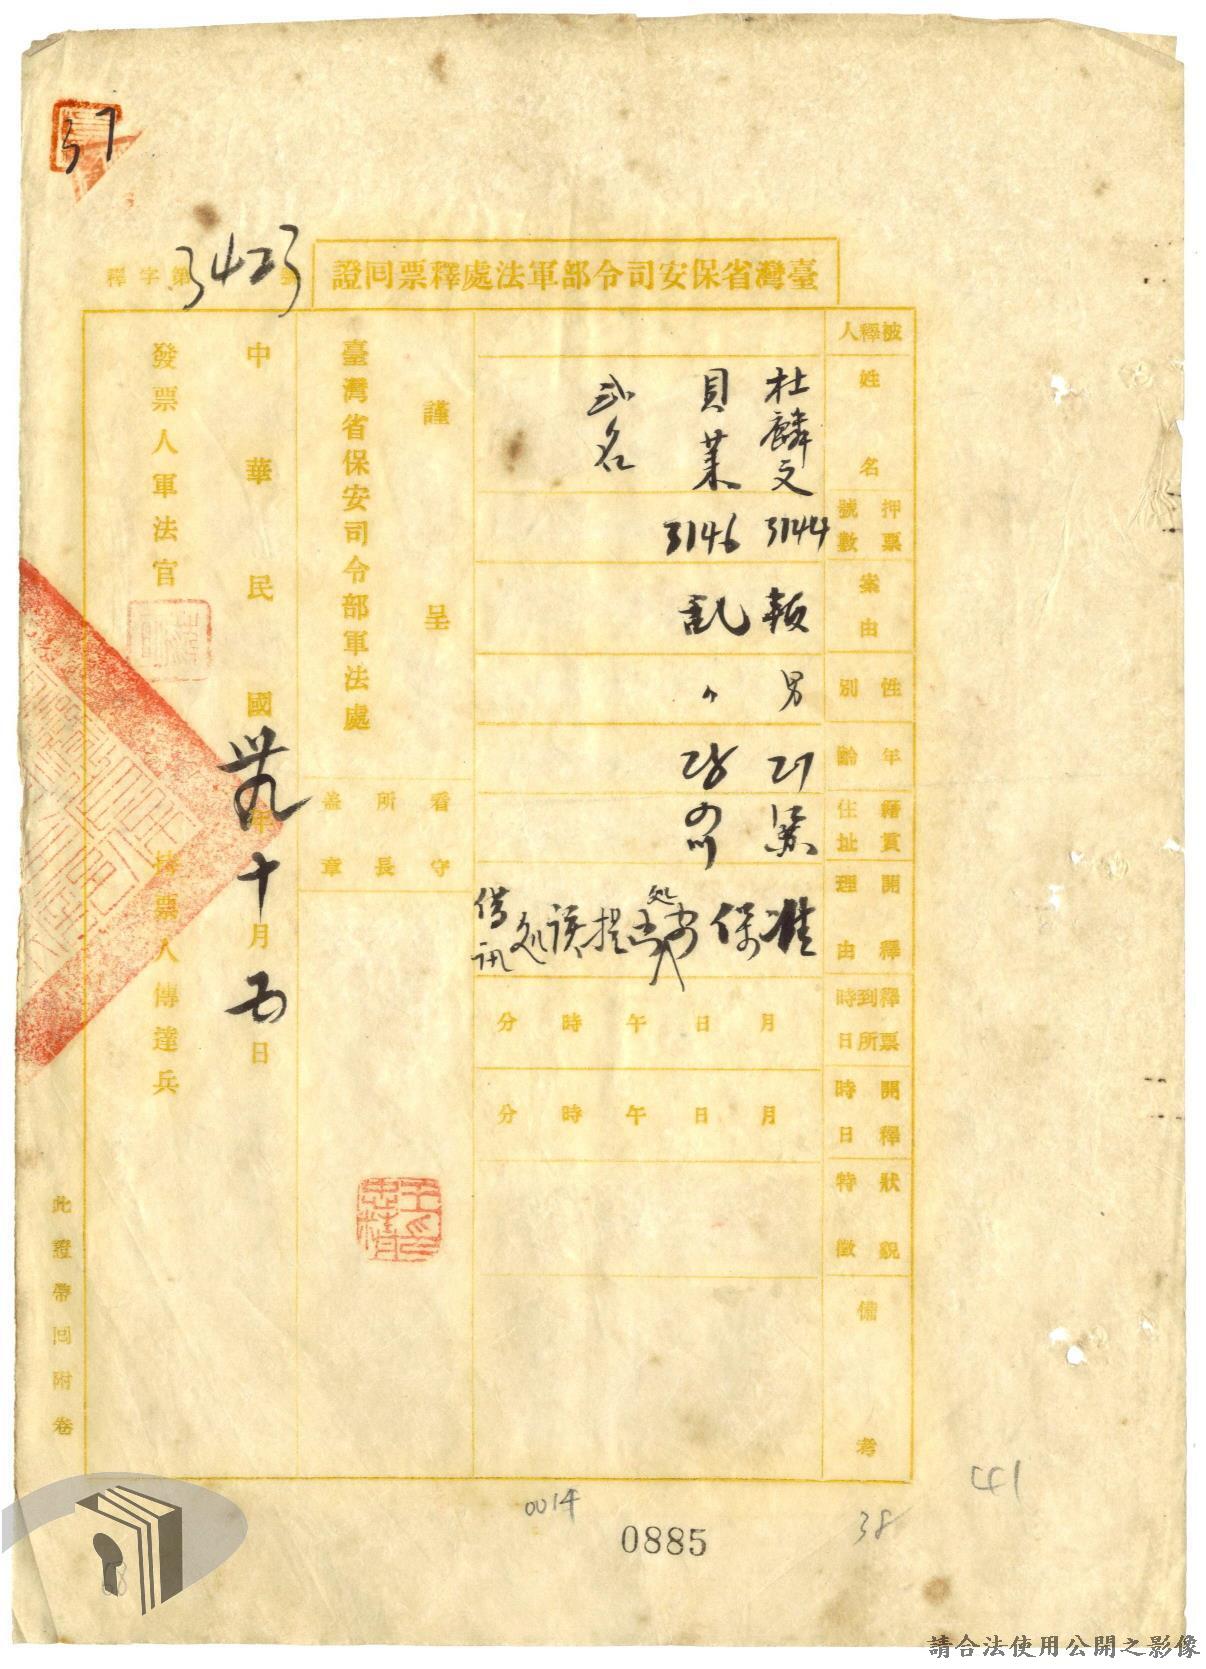 37
臺灣省保安司令部軍法處釋票回證
釋字第3423號
被釋人
姓名
杜麟文
貝萊
弍名
押票號數
3144
3146
案由
叛
亂
性別
男
〃
年齡
21
28
籍貫住址
四川
開釋理由
准
保安
處
提
該
處
借訊
釋票到所時日
月 日 午 時 分
開釋時日
月 日 午 時 分
狀貌特徵
備考
謹呈
臺灣省保安司令部軍法處
看守所長蓋章
王忠精印
中華民國卅九年十月五日
發票人軍法官
持票人傳達兵
此證帶回附卷
0014
0885
38
41
請合法使用公開之影像